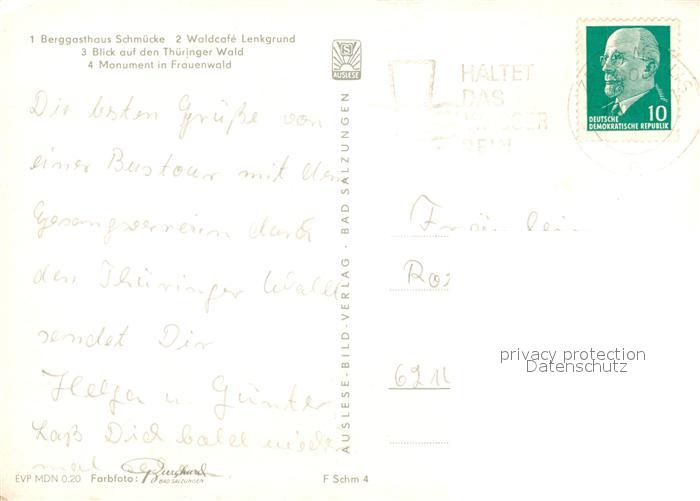 1 Berggasthaus Schmücke 2 Waldcafé Lenkgrund
3 Blick auf den Thüringer Wald
4 Monument in Frauenwald
AUSLESE
HALTET
DAS
DEUTSCHE
DEMOKRATISCHE REPUBLIK
10
Die besten Grüße von
einer Bustour mit dem
Gesangverein durch
den Thüringer Wald
sendet Dir
Helga u. Günter
Laß Dich bald wieder
mal
AUSLESE-BILD-VERLAG · BAD SALZUNGEN
Fräulein
privacy protection
Datenschutz
EVP MDN 0,20 Farbfoto: Burghard
BAD SALZUNGEN
F Schm 4